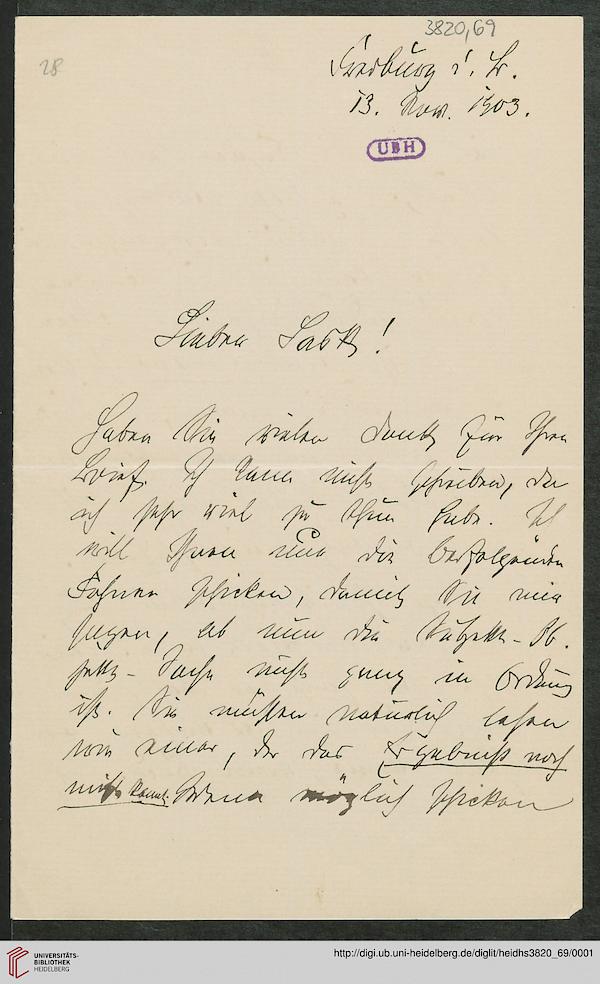 3820,69
28
Freiburg i. Br.
13. Nov. 1903.
UBH
Lieber Lask!
Haben Sie vielen Dank für Ihren
Brief. Ich kann nicht schreiben, da
ich sehr viel zu thun habe. Ich
will Ihnen nur die beifolgenden
Fahnen schicken, damit Sie mir
sagen, ob nun die Subjekt-Ob-
jekt-Sache nicht ganz in Ordnung
ist. Sie müssen natürlich lesen
wie einer, der das Ergebniß noch
nicht kennt. Wenn möglich schicken
UNIVERSITÄTS-
BIBLIOTHEK
HEIDELBERG
http://digi.ub.uni-heidelberg.de/diglit/heidhs3820_69/0001